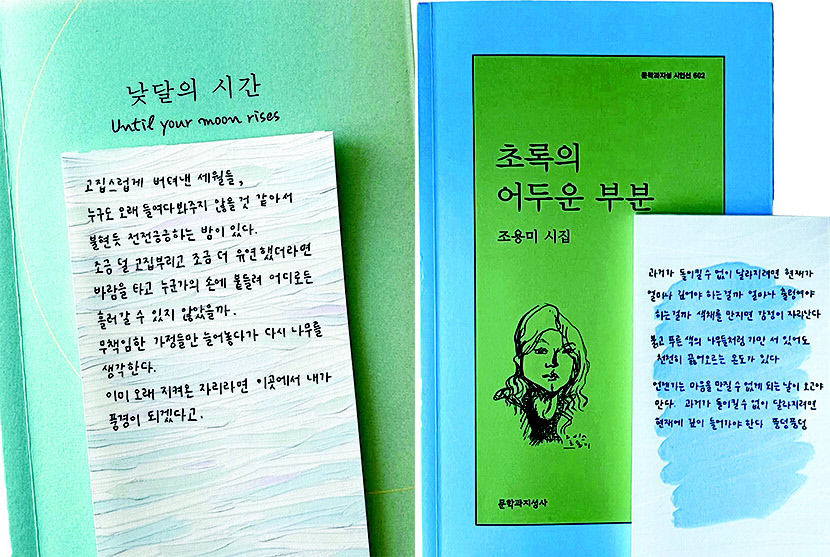 낮달의 시간
Until your moon rises
고집스럽게 버텨낸 세월들,
누구도 오래 들여다봐주지 않을 것 같아서
불현듯 전전긍긍하는 밤이 있다.
조금 덜 고집부리고 조금 더 유연했더라면
바람을 타고 누군가의 손에 붙들려 어디로든
흘러갈 수 있지 않았을까.
무책임한 가정들만 늘어놓다가 다시 나무를
생각한다.
이미 오래 지켜온 자리라면 이곳에서 내가
풍경이 되겠다고.
문학과지성 시인선 602
초록의
어두운 부분
조용미 시집
문학과지성사
과거가 돌이킬 수 없이 달라지려면 현재가
얼마나 깊어야 하는걸까 얼마나 출렁여야
하는걸까 색채를 만지면 감정이 자라난다
붉고 푸른 색의 나무들처럼 가만 서 있어도
천천히 끓어오르는 온도가 있다
언젠가는 마음을 만질 수 없게 되는 날이 오고야
만다. 과거가 돌이킬 수 없이 달라지려면
현재에 깊이 들어가야 한다 풍덩풍덩